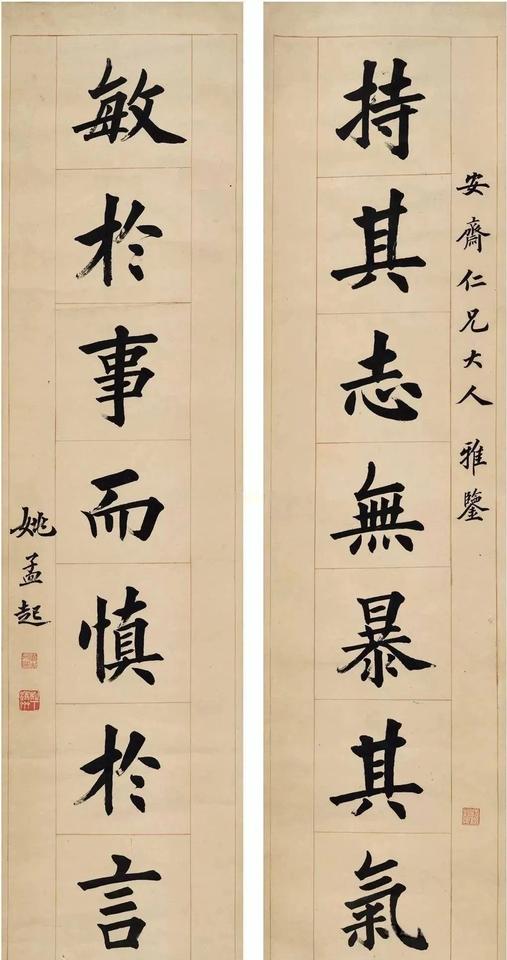 安齋仁兄大人 雅鑒
持其志無暴其氣
敏於事而慎於言
姚孟起